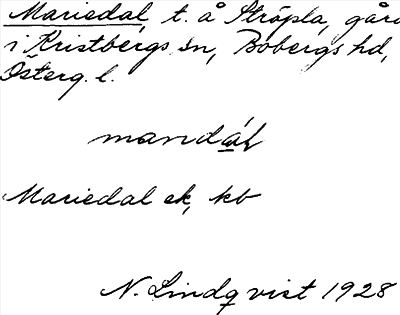 Mariedal, t. å Ströpla, gård
i Kristbergs sn, Bobergs hd,
Österg. l.
mandál
Mariedal ek, kb
N. Lindqvist 1928